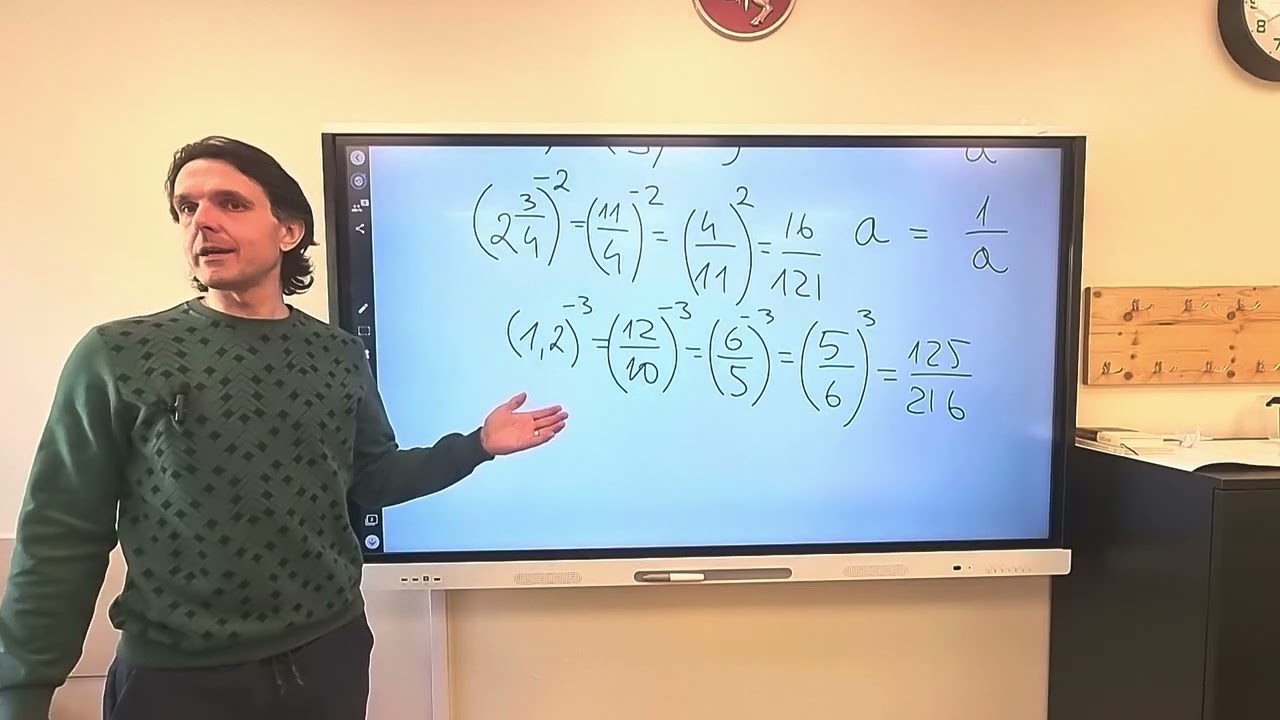 (2 3/4)^-2 = (11/4)^-2 = (4/11)^2 = 16/121 a = 1/a
(1,2)^-3 = (12/10)^-3 = (6/5)^-3 = (5/6)^3 = 125/216